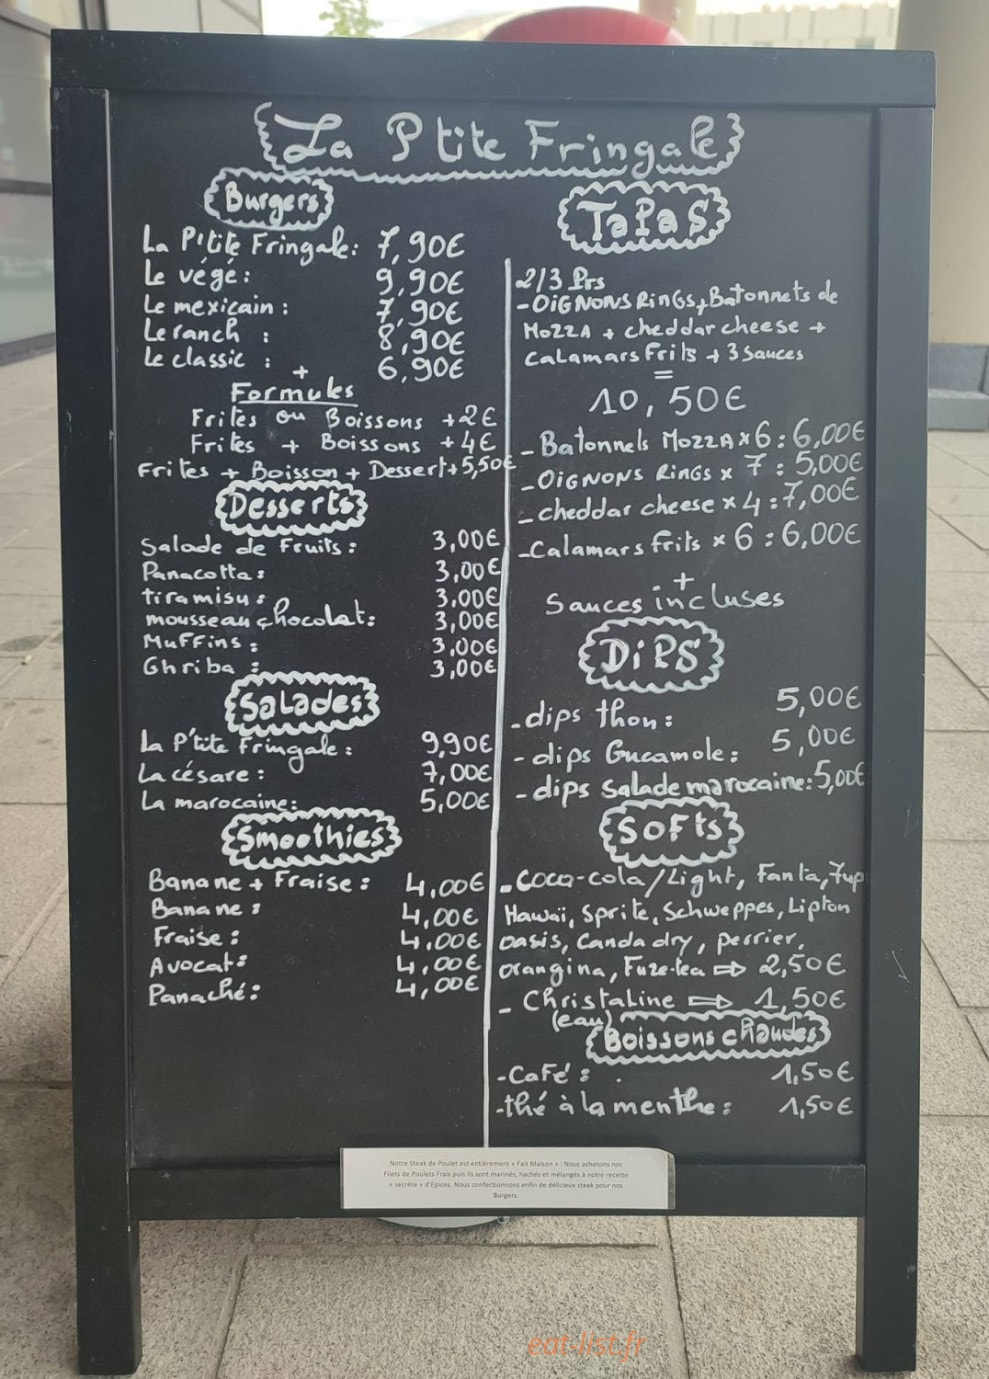 La P'tite Fringale
Burgers
La P'tite Fringale: 7,90€
Le végé: 9,90€
Le mexicain: 7,90€
Le ranch : 8,90€
Le classic : 6,90€
+
Formules
Frites ou Boissons +2€
Frites + Boissons +4€
Frites + Boisson + Dessert+5,50€
Desserts
Salade de Fruits: 3,00€
Panacotta: 3,00€
tiramisu: 3,00€
mousseau chocolat: 3,00€
Muffins: 3,00€
Ghriba : 3,00€
Salades
La P'tite Fringale: 9,90€
La césare: 7,00€
La marocaine: 5,00€
Smoothies
Banane + Fraise: 4,00€
Banane: 4,00€
Fraise: 4,00€
Avocat: 4,00€
Panaché: 4,00€
Tapas
2/3 Prs
-OiGNONS RiNGS+Batonnets de
MOZZA + cheddar cheese +
calamars Frits + 3 Sauces
=
10,50€
- Batonnels MOZZA x6: 6,00€
- OiGNONS RiNGS x 7 : 5,00€
- cheddar cheese x 4 : 7,00€
-Calamars frits x 6 : 6,00€
+
Sauces incluses
DiPS
-dips thon: 5,00€
-dips Gucamole: 5,00€
-dips Salade marocaine: 5,00€
SOFTS
-Coca-cola/Light, Fanta, 7up
Hawaï, Sprite, Schweppes, Lipton
oasis, Canda dry, perrier,
orangina, Fuze-tea ⇨ 2,50€
- Christaline ⇨ 1,50€
(eau)
Boissons chaudes
-Café: 1,50€
-thé à la menthe: 1,50€
Notre Steak de Poulet est entièrement « Fait Maison » : Nous achetons nos
Filets de Poulets Frais puis ils sont marinés, hachés et mélangés à notre recette
« secrète » d'Epices. Nous confectionnons enfin de délicieux steak pour nos
Burgers.
eat-list.fr